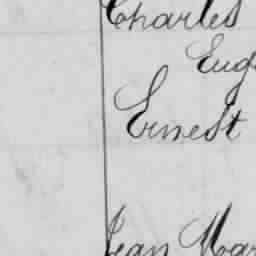 Charles
Eug
Ernest
Jean Mar